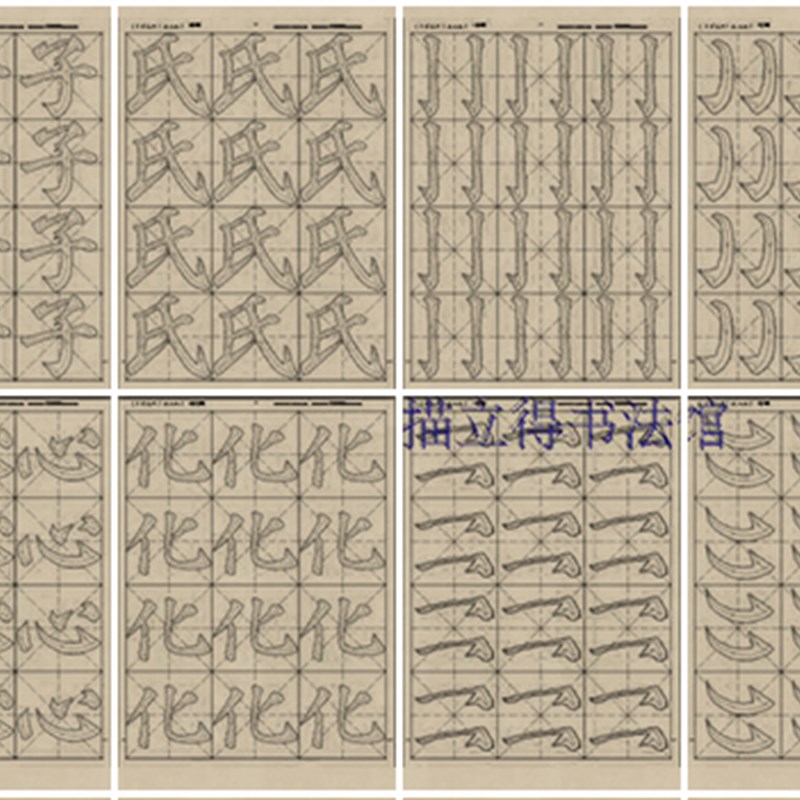 子 氏 氏 氏
子 氏 氏 氏
子 氏 氏 氏
子 氏 氏 氏
描立得书法馆
心 化 化 化
心 化 化 化
心 化 化 化
心 化 化 化